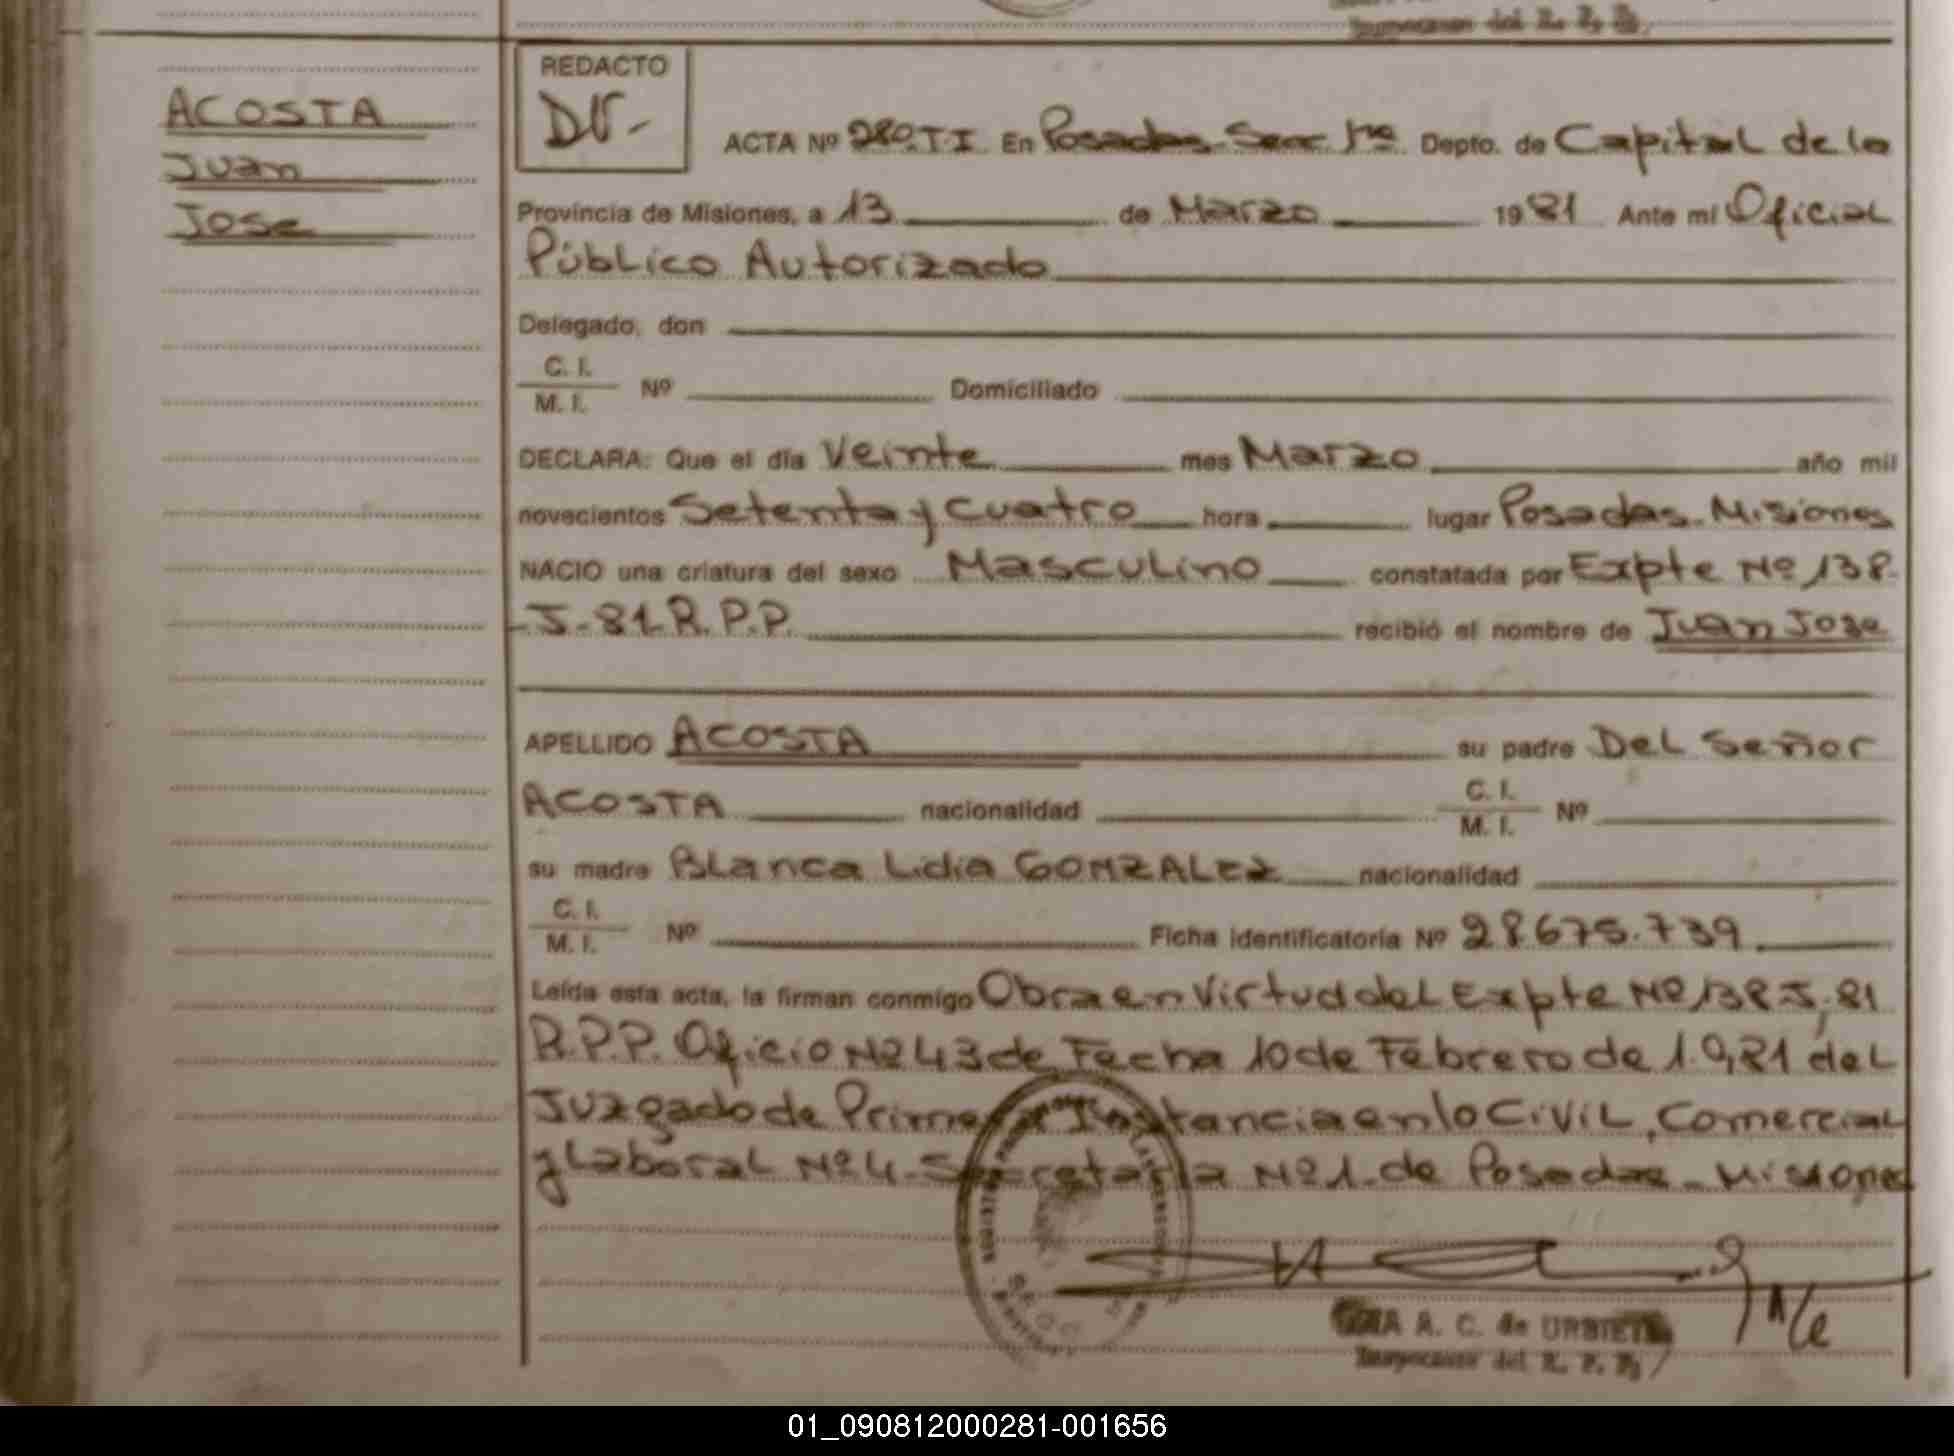 del R. P. P.
ACOSTA
Juan
Jose
REDACTO
DV-
ACTA Nº 280.T.I. En Posadas Secc 1ra Depto. de Capital de la
Provincia de Misiones, a 13 de Marzo 1981 Ante mí Oficial
Público Autorizado
Delegado, don
C. I.
M. I. Nº Domiciliado
DECLARA: Que el día Veinte mes Marzo año mil
novecientos Setenta y Cuatro hora lugar Posadas-Misiones
NACIO una criatura del sexo Masculino constatada por Expte Nº 138-
-J-81 R.P.P. recibió el nombre de Juan Jose
APELLIDO ACOSTA su padre Del Señor
ACOSTA nacionalidad C. I.
M. I. Nº
su madre Blanca Lidia GONZALEZ nacionalidad
C. I.
M. I. Nº Ficha identificatoria Nº 28.675.739
Leída esta acta, la firman conmigo Obra en Virtud del Expte Nº 138-J-81
R.P.P. Oficio Nº 43 de Fecha 10 de Febrero de 1.981 del
Juzgado de Primera Instancia en lo Civil, Comercial
y Laboral Nº 4-Secretaria Nº 1-de Posadas-Misiones
A. C. de URBIETA
del R. P. P.
01_090812000281-001656